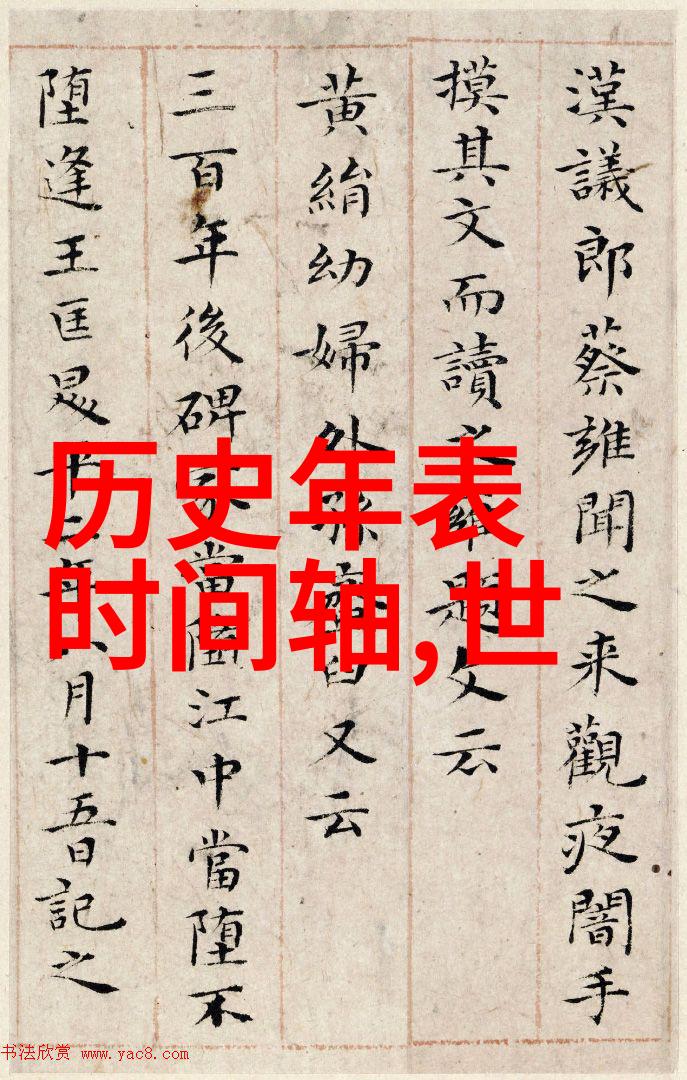 漢議郎蔡雍聞之来觀夜闇手
摸其文而讀之雍題文云
黄絹幼婦外孫臼又云
三百年後碑冢當江中當堕不
堕逢王匡昇平二年八月十五日記之
历史年表
时间轴,世
书法欣赏 www.yac8.com